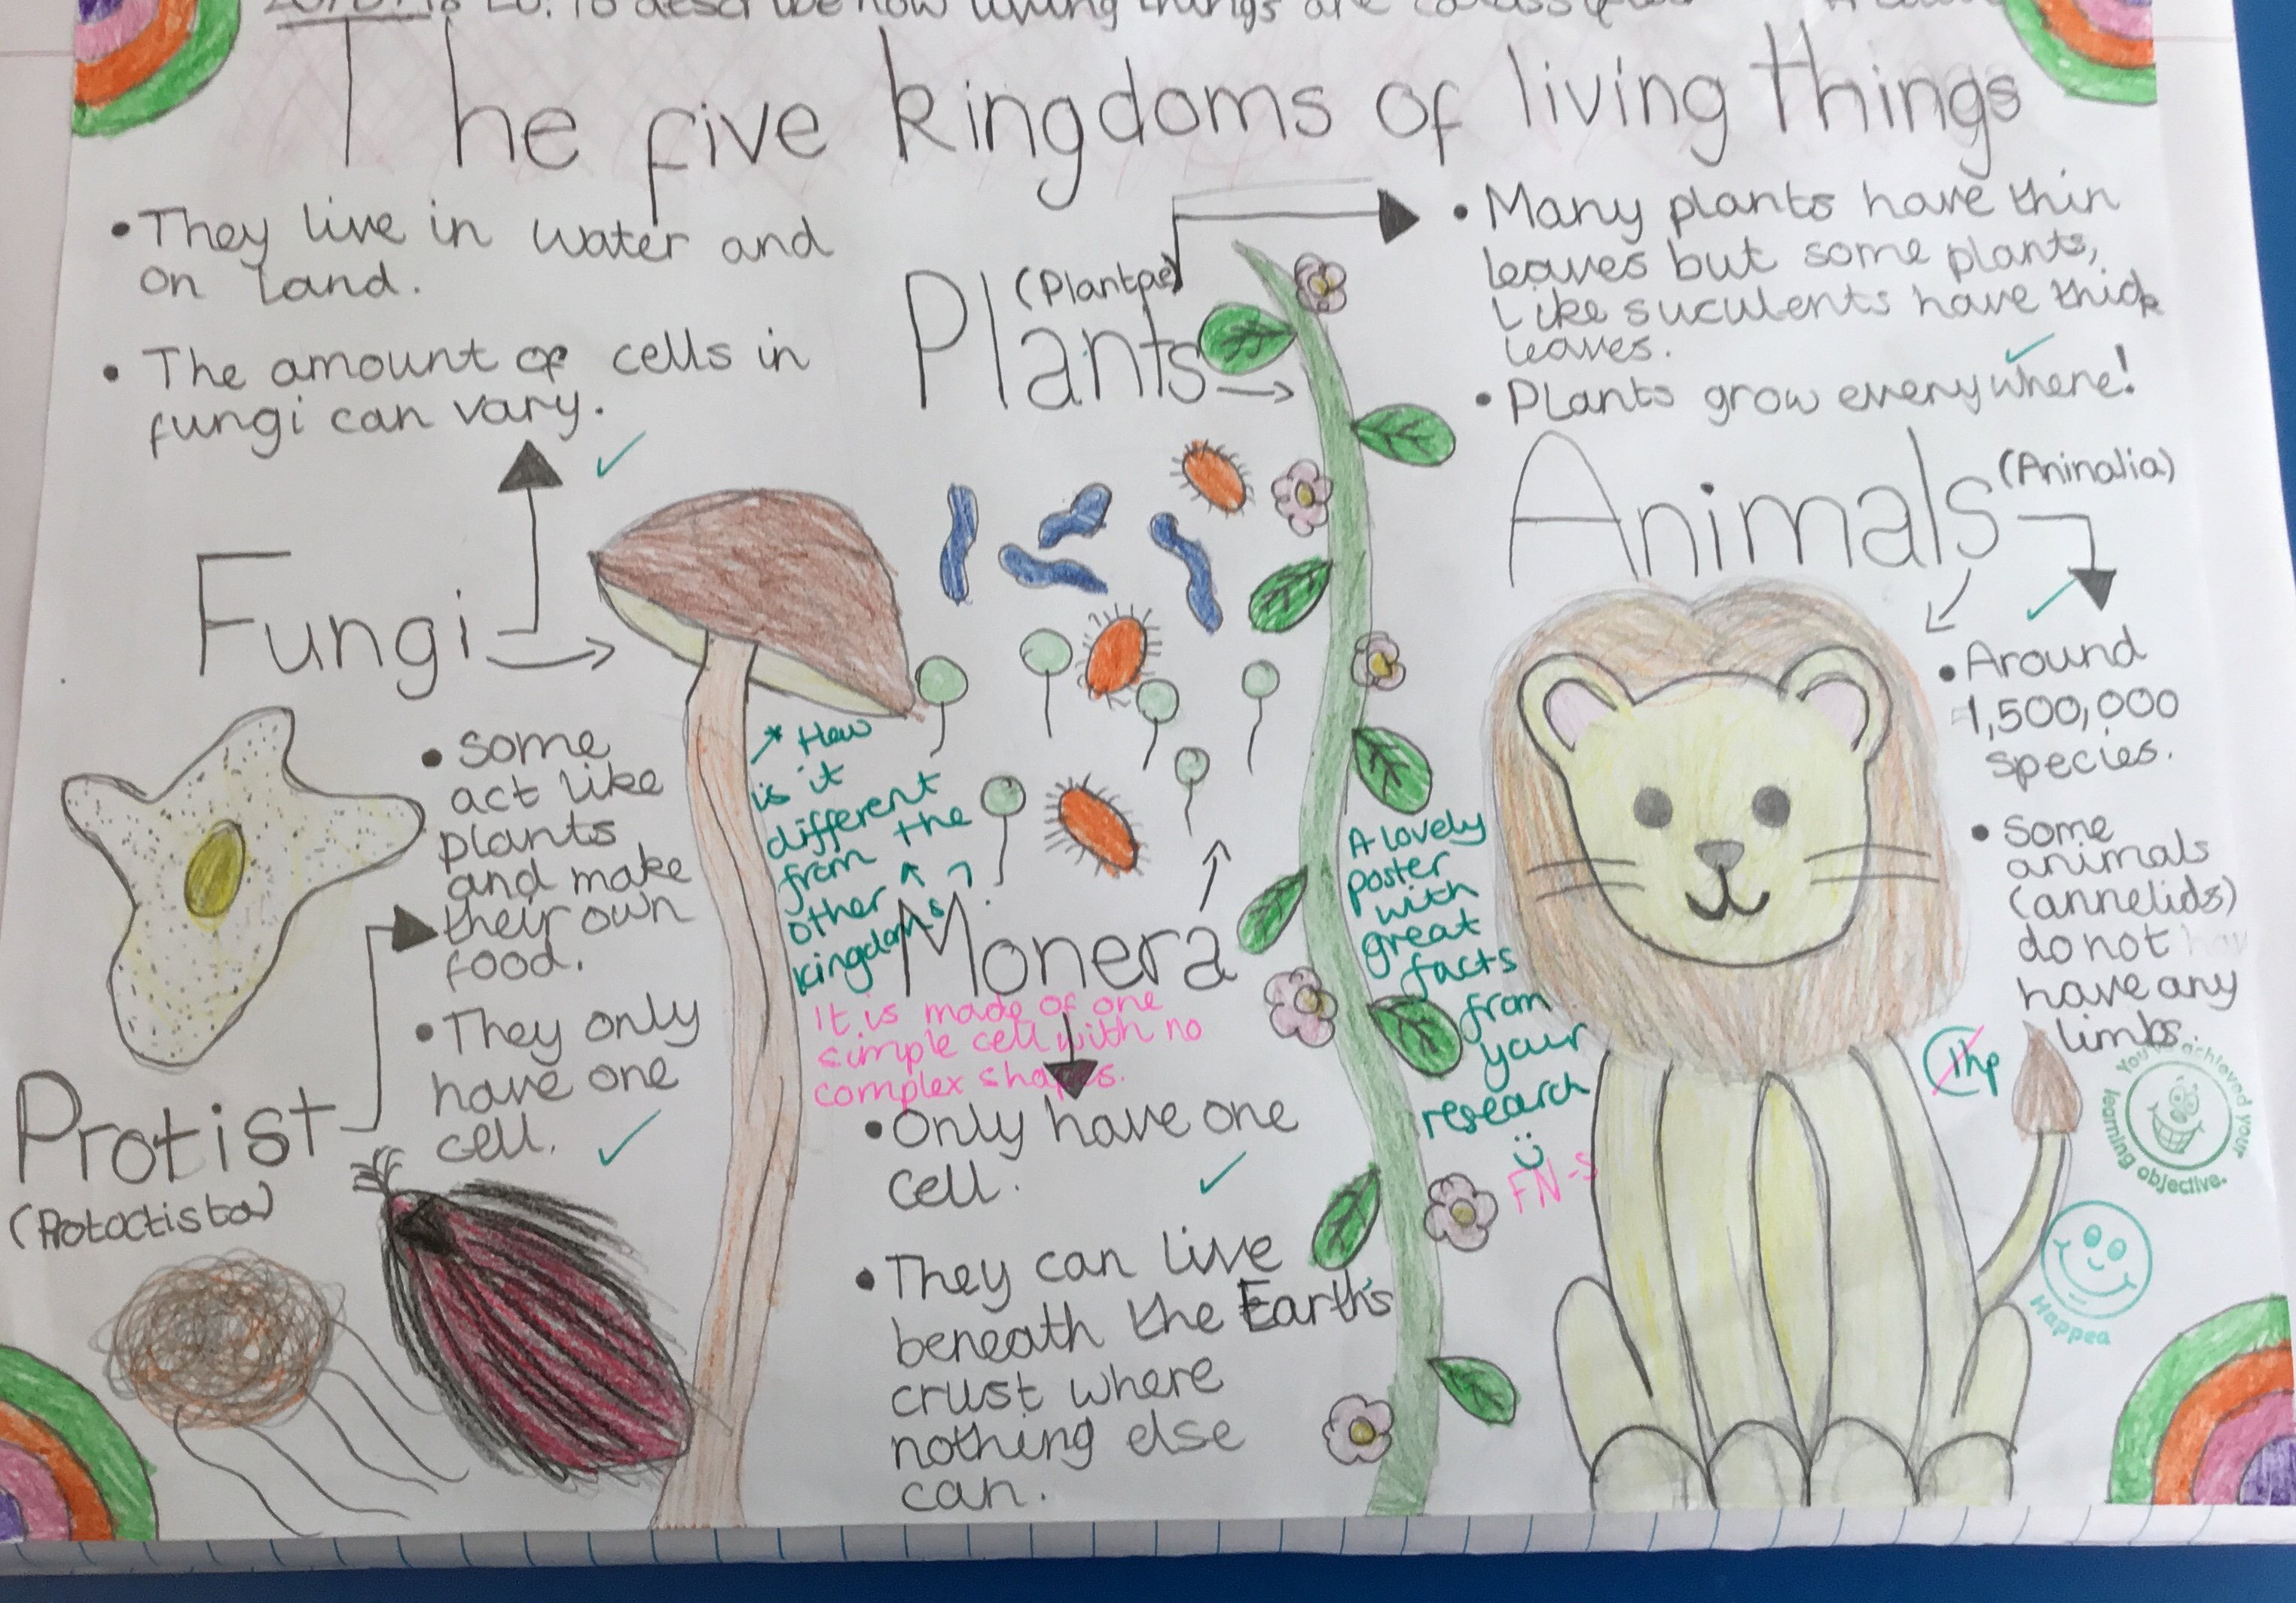 LO: To describe how living things are classified
The five kingdoms of living things
• They live in water and
on land.
• The amount of cells in
fungi can vary.
Fungi
Plants
(Plantae)
• Many plants have thin
leaves but some plants,
Like suculents have thick
leaves.
• Plants grow everywhere!
Animals
(Aninalia)
• Around
1,500,000
species.
• Some
animals
(annelids)
do not
have any
limbs.
• Some
act like
plants
and make
their own
food.
• They only
have one
cell.
Protist
(Protoctista)
* How
is it
different
from the
other
kingdoms?
Monera
It is made of one
simple cell with no
complex shapes.
• Only have one
cell.
• They can live
beneath the Earth's
crust where
nothing else
can.
A lovely
poster
with
great
facts
from
your
research
FN-S
1hp
You've achieved your
learning objective.
Happea